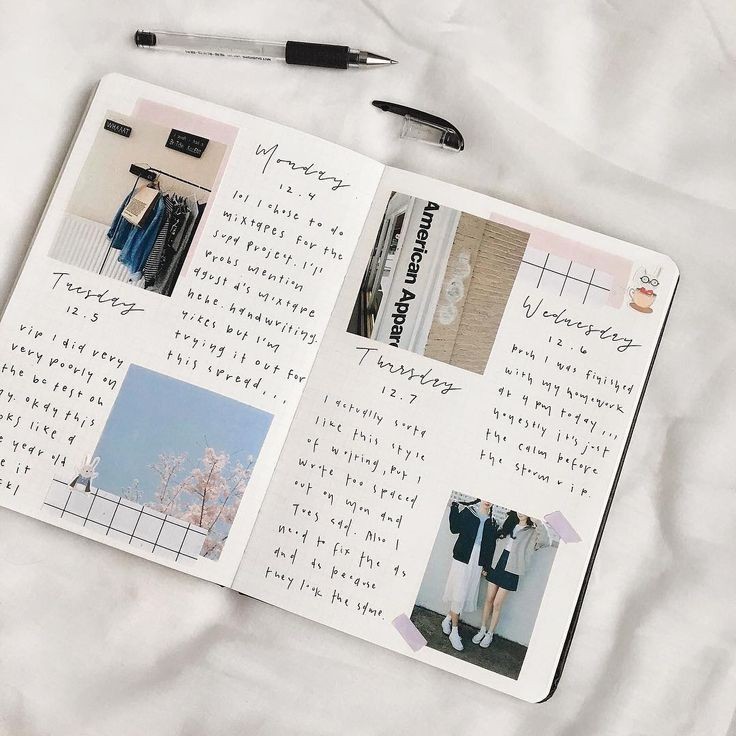 WHAAAT
Monday
12.4
lol I chose to do
mixtapes for the
supa project. I'll
probs mention
agust d's mixtape
hehe. handwriting.
yikes but I'm
trying it out for
this spread...
Tuesday
12.5
rip I did very
very poorly on
the bc test oh
my. okay this
oks like a
e year old
e it
ck!
American Appare
Thursday
12.7
I actually sorta
like this style
of writing, but I
wrote too spaced
out on mon and
tues sad. Also I
need to fix the as
and ds because
they look the same.
Wednesday
12.6
bruh I was finished
with my homework
at 4 pm today...
honestly it's just
the calm before
the storm rip.